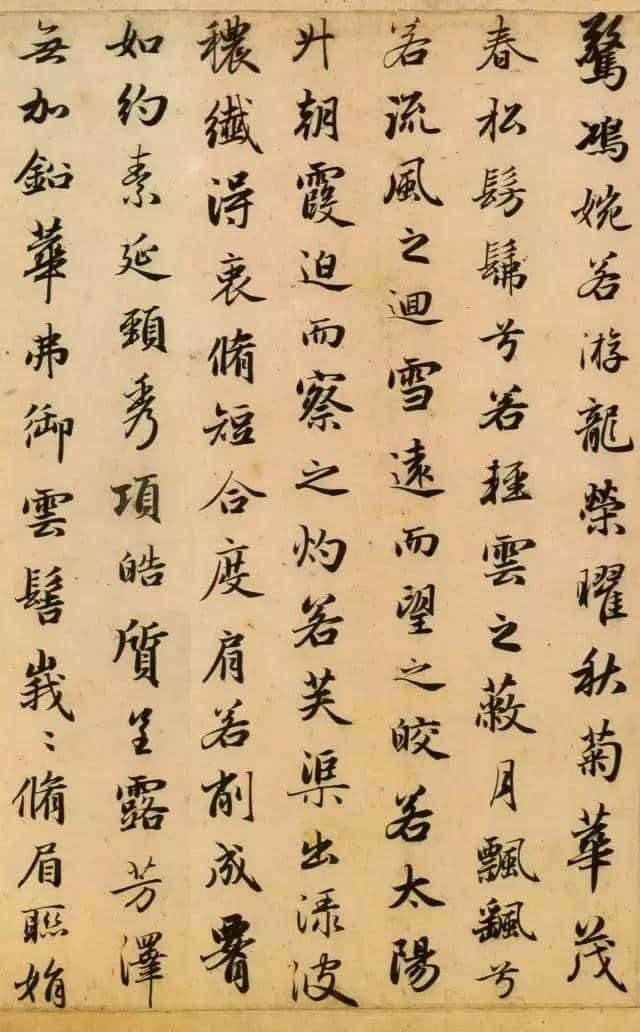 驚鴻婉若游龍榮曜秋菊華茂
春松髣髴兮若輕雲之蔽月飄飖兮
若流風之迴雪遠而望之皎若太陽
升朝霞迫而察之灼若芙渠出淥波
穠纖得衷脩短合度肩若削成署
如約素延頸秀項皓質呈露芳澤
無加鉛華弗御雲髻峩〻脩眉聯娟